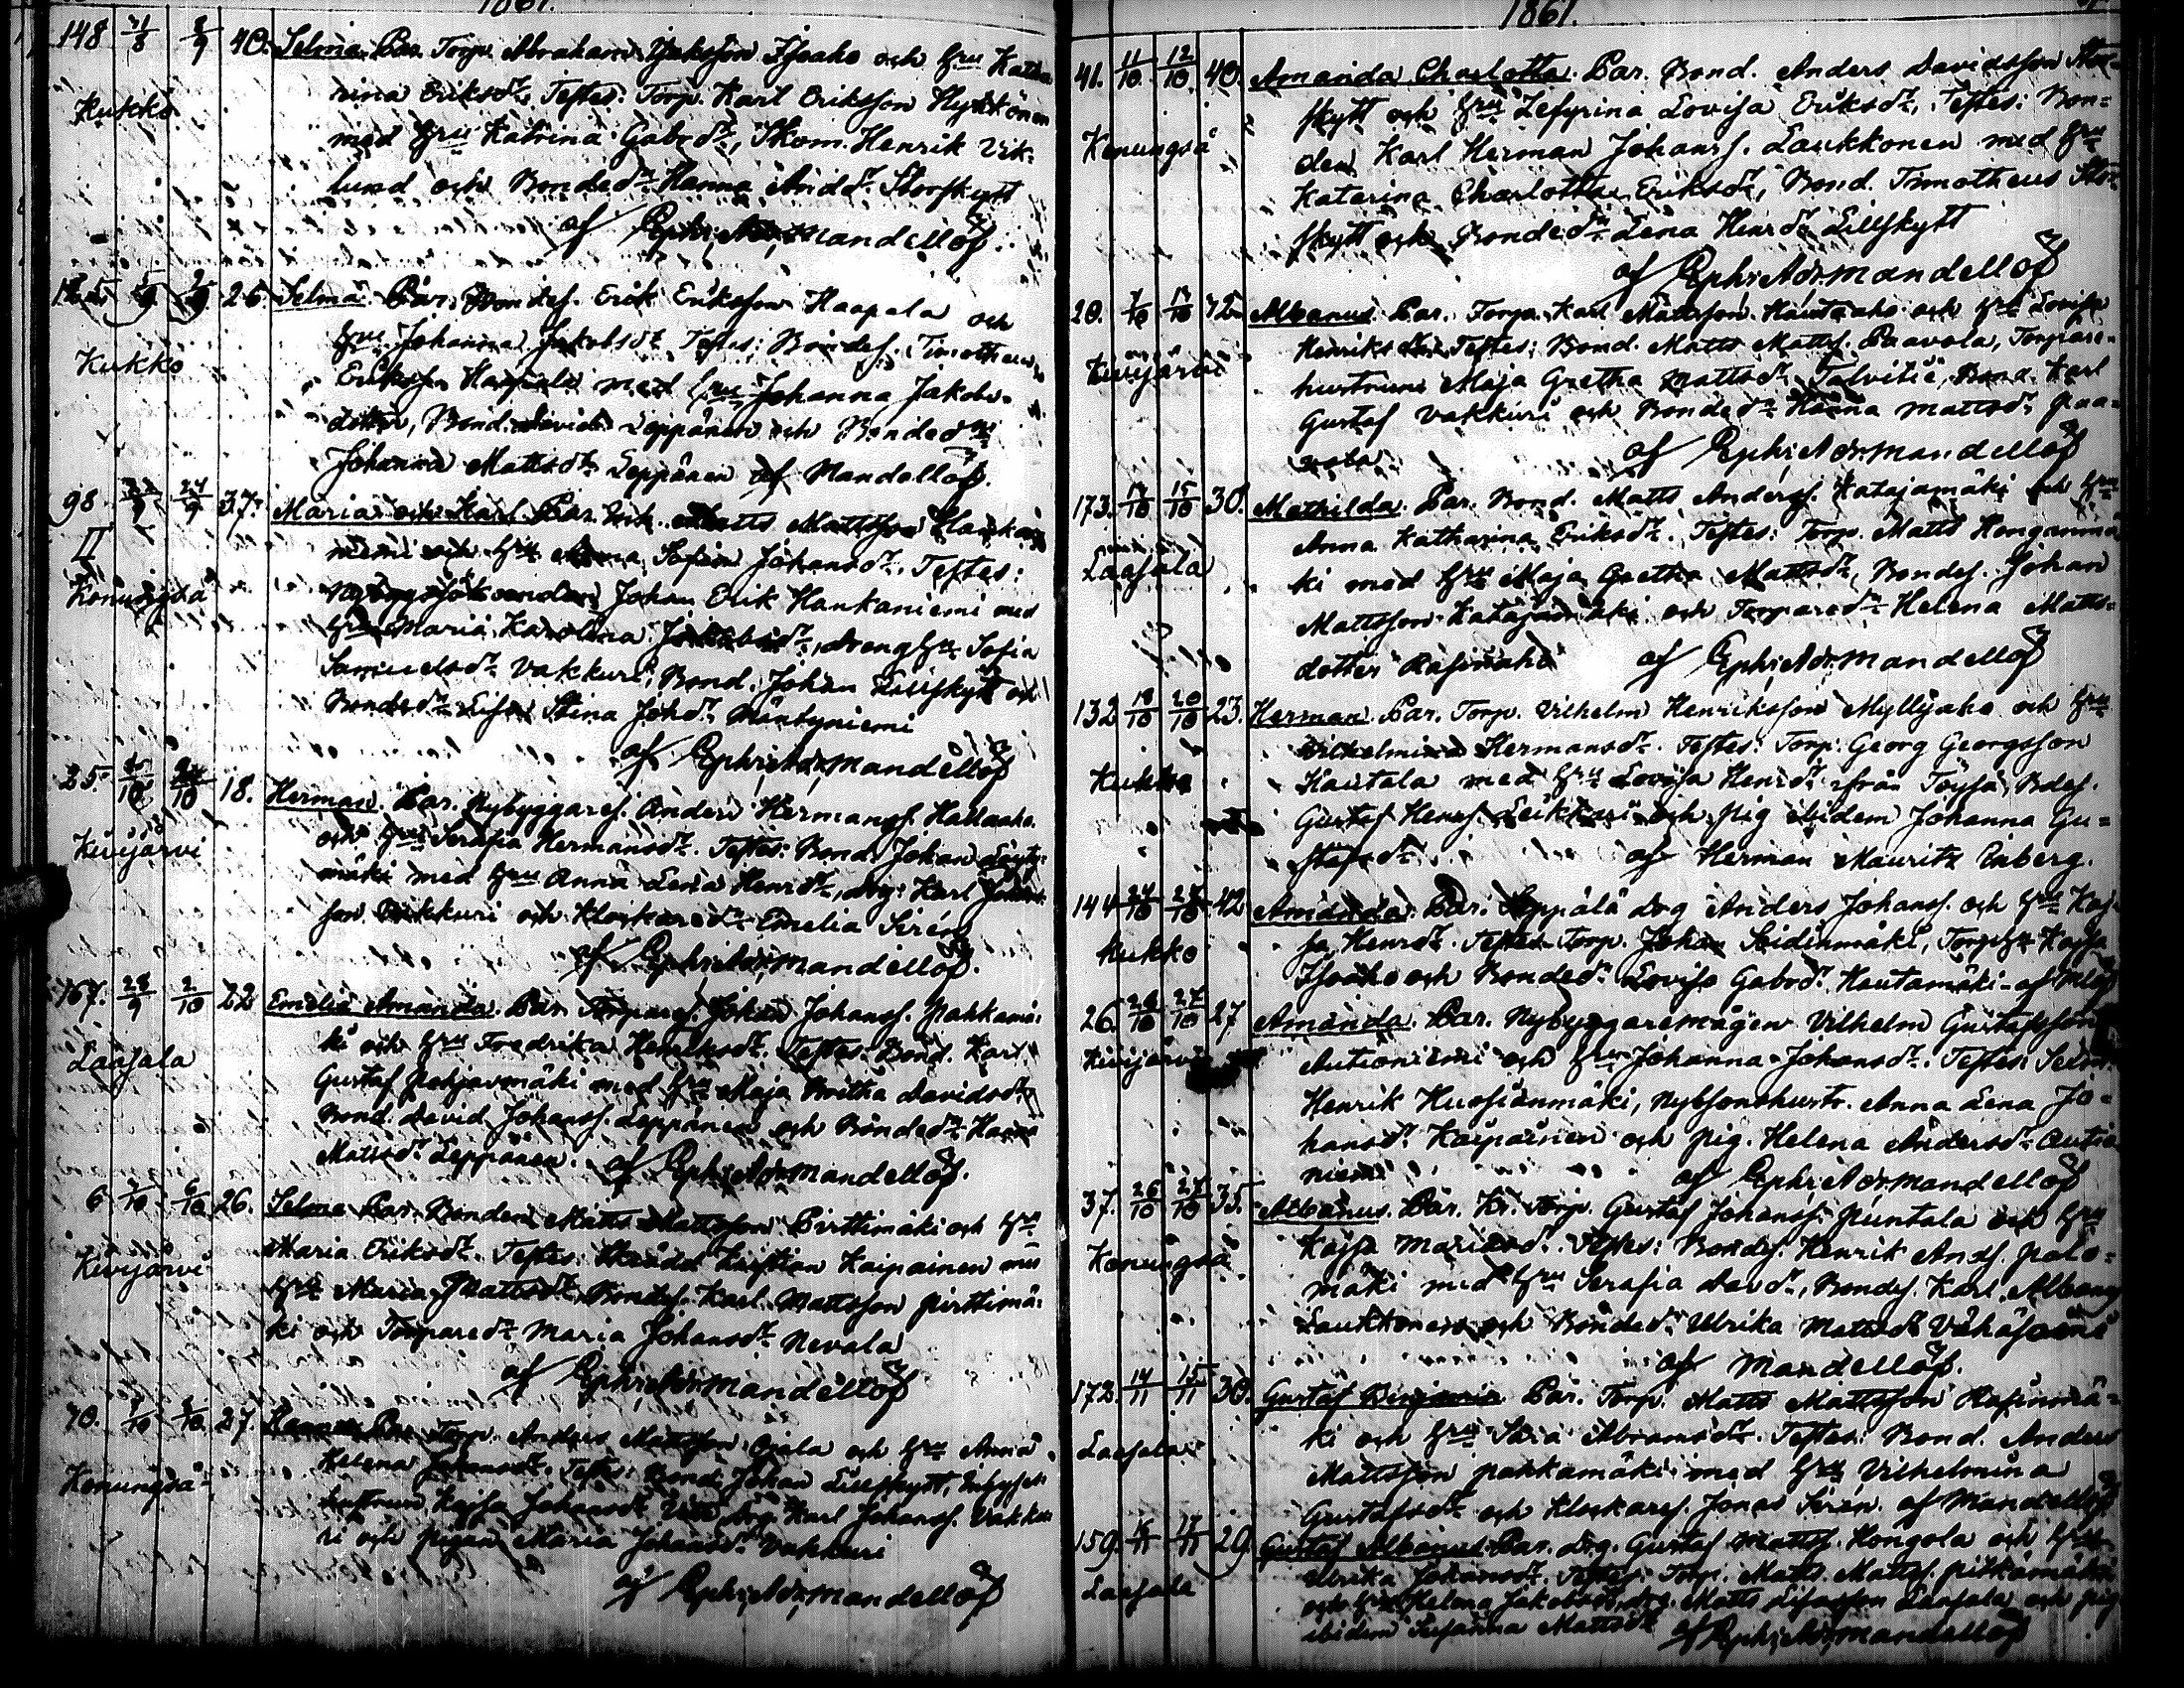 1861.
148 21/8 8/9 40. Selma. Par. Torp. Abraham Isaksson Isoaho och Hru Katha
rina Eriksdr. Testes: Torp. Karl Eriksson Hyrkkönen
Kukko
med Hru Katrina Gabrdr, Skom. Henrik Vik-
lund och Bondedr Hanna Anddr Storskytt
af Ephr. Adr. Mandellöf.
26 Selma. Par. Bondes. Erik Eriksson Haapala och
Hru Johanna Jakobsdr Testes: Bondes. Timotheus
Kukko
Eriksson Haapala med Hru Johanna Jakobs-
dotter, Bond. David Leppänen och Bondedn
Johanna Mattsdr Leppänen af Mandellöf.
98 22/9 24/9 37. Maria och Karl. Par. Matts Mattsson Hanka
II
niemi och Hru Anna Sofia Johansdr. Testes:
Konungså
Johan Erik Hankaniemi med
Hru Maria Karolina Jakobsdr, drenghru Sofia
Samuelsdr Vakkuri, Bond. Johan Lillskytt och
Bondedr Lisa Stina Johdr Mäntyniemi
af Ephr. Adr. Mandellöf
25. 18. Herman. Par. Nybyggares. Anders Hermanss. Hallaaho
och Hru Serafia Hermansdr. Testes: Bond. Johan Löyty-
Kivijärvi
mäki med Hru Anna Lena Henrdr, drg: Karl Johans-
son Vakkuri och Klockaredr Emelia Sirén
af Ephr. Adr. Mandellöf.
167. 28/9 2/10 22 Emelia Amanda. Par. Torpares. Johan Johanss. Pakkamä-
ki och Hru Fredrika Henriksdr. Testes: Bond. Karl
Laasala
Gustaf Pohjasmäki med Hru Maja Britha Davidsdr,
Bond. David Johanss. Leppänen och Bondedr Hanna
Mattsdr Leppänen. af Ephr. Adr. Mandellöf.
6 6/10 26. Selma. Par. Bonden Matts Mattsson Pirttimäki och Hru
Maria Eriksdr. Testes: Kristian Kaipainen med
Kivijärvi
Hru Maria Mattsdr, Bondes. Karl Mattsson Pirttimä-
ki och Torparedr Maria Johansdr Nevala
af Ephr. Adr. Mandellöf
70. 27. Hanna. Par. Torp. Anders Mattsson Ojala och Hru Anna
Helena Johansdr. Testes: Bond. Johan Lillskytt,
Konungså
hustrun Kajsa Johansdr drg. Karl Johanss. Vakku-
ri och pigan Maria Johansdr Vakkuri
af Ephr. Adr. Mandellöf
1861.
41. 11/10 12/10 40. Amanda Charlotta. Par. Bond. Anders Davidsson Stor-
skytt och Hru Zefyrina Lovisa Eriksdr, Testes: Bon-
Konungså
den Karl Herman Johanss. Laukkonen med Hru
Katarina Charlotta Eriksdr, Bond. Timotheus Stor-
skytt och Bondedr Lena Henrdr Lillskytt
af Ephr. Adr. Mandellöf
20. 42 Albanus. Par. Torp. Karl Mattsson Hautaaho och Hru Lovisa
Henriksdr. Testes: Bond. Matts Matts. Paavola, Torpare-
Kivijärvi
hustrun Maja Gretha Mattsdr Talvitie, Bond. Karl
Gustaf Vakkuri och Bondedr Hanna Mattsdr Paa-
vola. af Ephr. Adr. Mandellöf
173. 14/10 15/10 30. Mathilda. Par. Bond. Matts Anderss. Katajamäki och Hru
Anna Katharina Eriksdr. Testes: Torp. Matts Honganmä
Laasala
ki med Hru Maja Gretha Mattsdr, Bondes. Johan
Mattsson Katajamäki och Torparedr Helena Matts-
dotter af Ephr. Adr. Mandellöf
132 19/10 20/10 23. Herman. Par. Torp. Vilhelm Henriksson Myllyaho och Hru
Vilhelmina Hermansdr. Testes: Torp. Georg Georgsson
Kukko
Kautala med Hru Lovisa Henrdr från Töysä, Bdes.
Gustaf Henrs. Leikkari och pig. ibidem Johanna Gu-
stafsdr. af Herman Mauritz Enberg.
144 42 Amanda. Par. Seppälä drg Anders Johanss. och Hru Kaj-
Kukko
sa Henrdr. Testes Torp. Johan Seidinmäki, Torphr Kajsa
Isoaho och Bondedr Lovisa Gabrdr Hautamäki af Mlöf
26. 26/10 27/10 27 Amanda. Par. Nybyggaremågen Vilhelm Gustafsson
Kivijärvi
Autioniemi och Hru Johanna Johansdr. Testes:
Henrik Huosianmäki, Nybsonshustr. Anna Lena Jo-
hansdr Kaipainen och pig. Helena Andersdr Autio
niemi af Ephr. Adr. Mandellöf
37. 26/10 27/10 35. Albanus. Par. Kr. Torp. Gustaf Johanss. Puntala och Hru
Konungså
Kajsa Mariasdr. Testes: Bondes. Henrik Ands. Palo-
mäki med Hru Serafia Davdr, Bondes. Karl Albanus
Laukkonen och Bondedr Ulrika Mattsdr Vähäsaari
af Mandellöf.
172. 14/11 15/11 30. Gustaf Benjamin. Par. Torp. Matts Mattsson Hapinmä-
ki och Hru Abramsdr. Testes: Bond. Anders
Laasala
Mattsson Pakkamäki med Hru Vilhelmina
Gustafsdr och Klockares. Jonas Sirén. af Mandellöf
159. 16/11 17/11 29. Gustaf Albanus. Par. Drg. Gustaf Mattss. Hongola och Hru
Ulrika Johansdr. Testes: Torp. Matts Mattss. Pitkämäki
Laasala
och Hru Helena Jakobsdr, drg. Matts Laasala och pig
ibidem Susanna Mattsdr af Ephr. Adr. Mandellöf